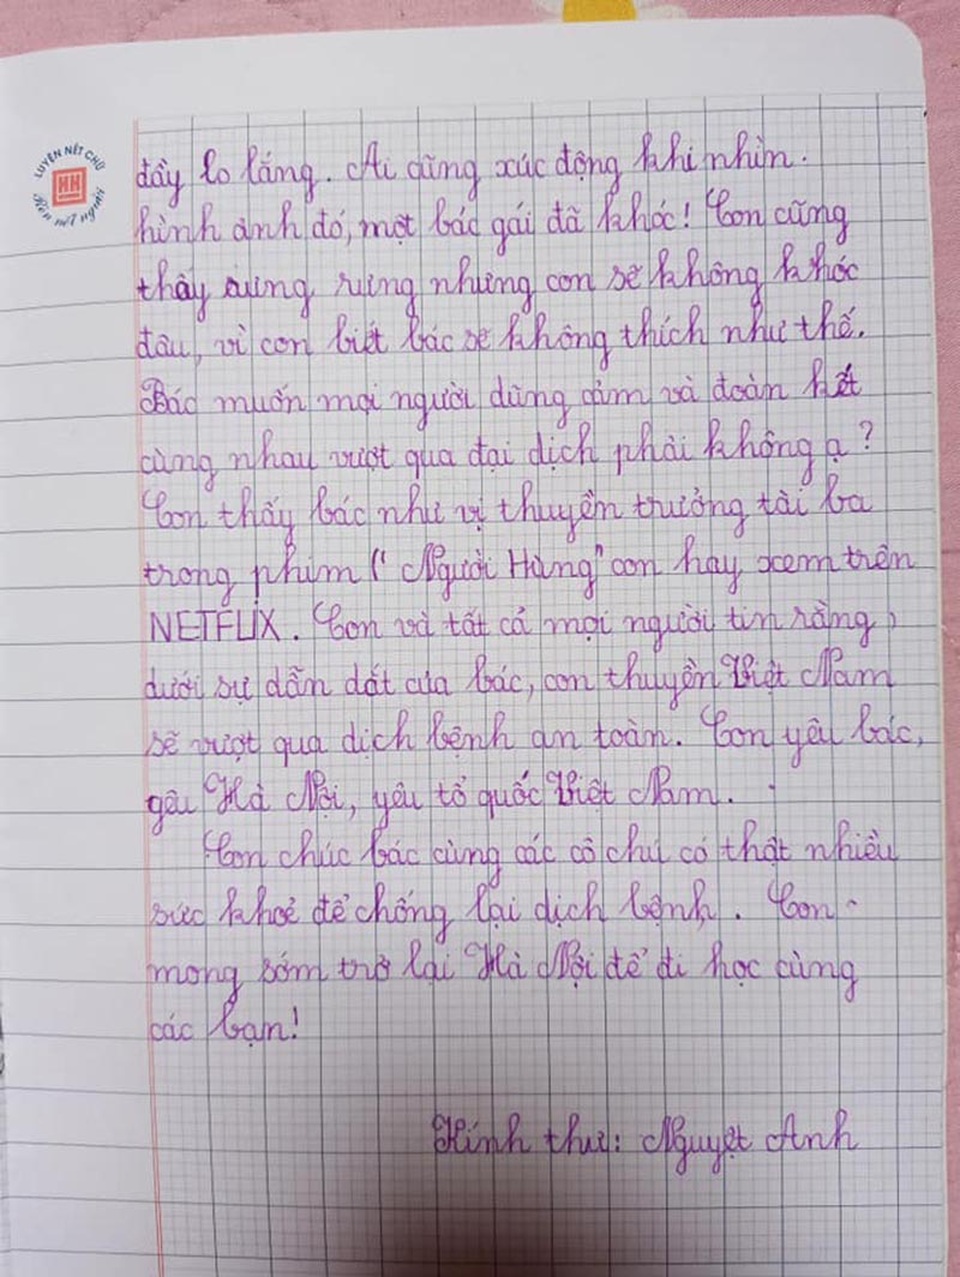 LUYỆN NÉT CHỮ
HH
Rèn nết người
đầy lo lắng. Ai cũng xúc động khi nhìn.
hình ảnh đó, một bác gái đã khóc! Con cũng
thấy rưng rưng nhưng con sẽ không khóc
đâu, vì con biết bác sẽ không thích như thế.
Bác muốn mọi người dũng cảm và đoàn kết
cùng nhau vượt qua đại dịch phải không ạ?
Con thấy bác như vị thuyền trưởng tài ba
trong phim ("Người Hùng" con hay xem trên
NETFLIX. Con và tất cả mọi người tin rằng,
dưới sự dẫn dắt của bác, con thuyền Việt Nam
sẽ vượt qua dịch bệnh an toàn. Con yêu bác,
yêu Hà Nội, yêu tổ quốc Việt Nam.
Con chúc bác cùng các cô chú có thật nhiều
sức khoẻ để chống lại dịch bệnh. Con
mong sớm trở lại Hà Nội để đi học cùng
các bạn!
Kính thư: Nguyệt Anh